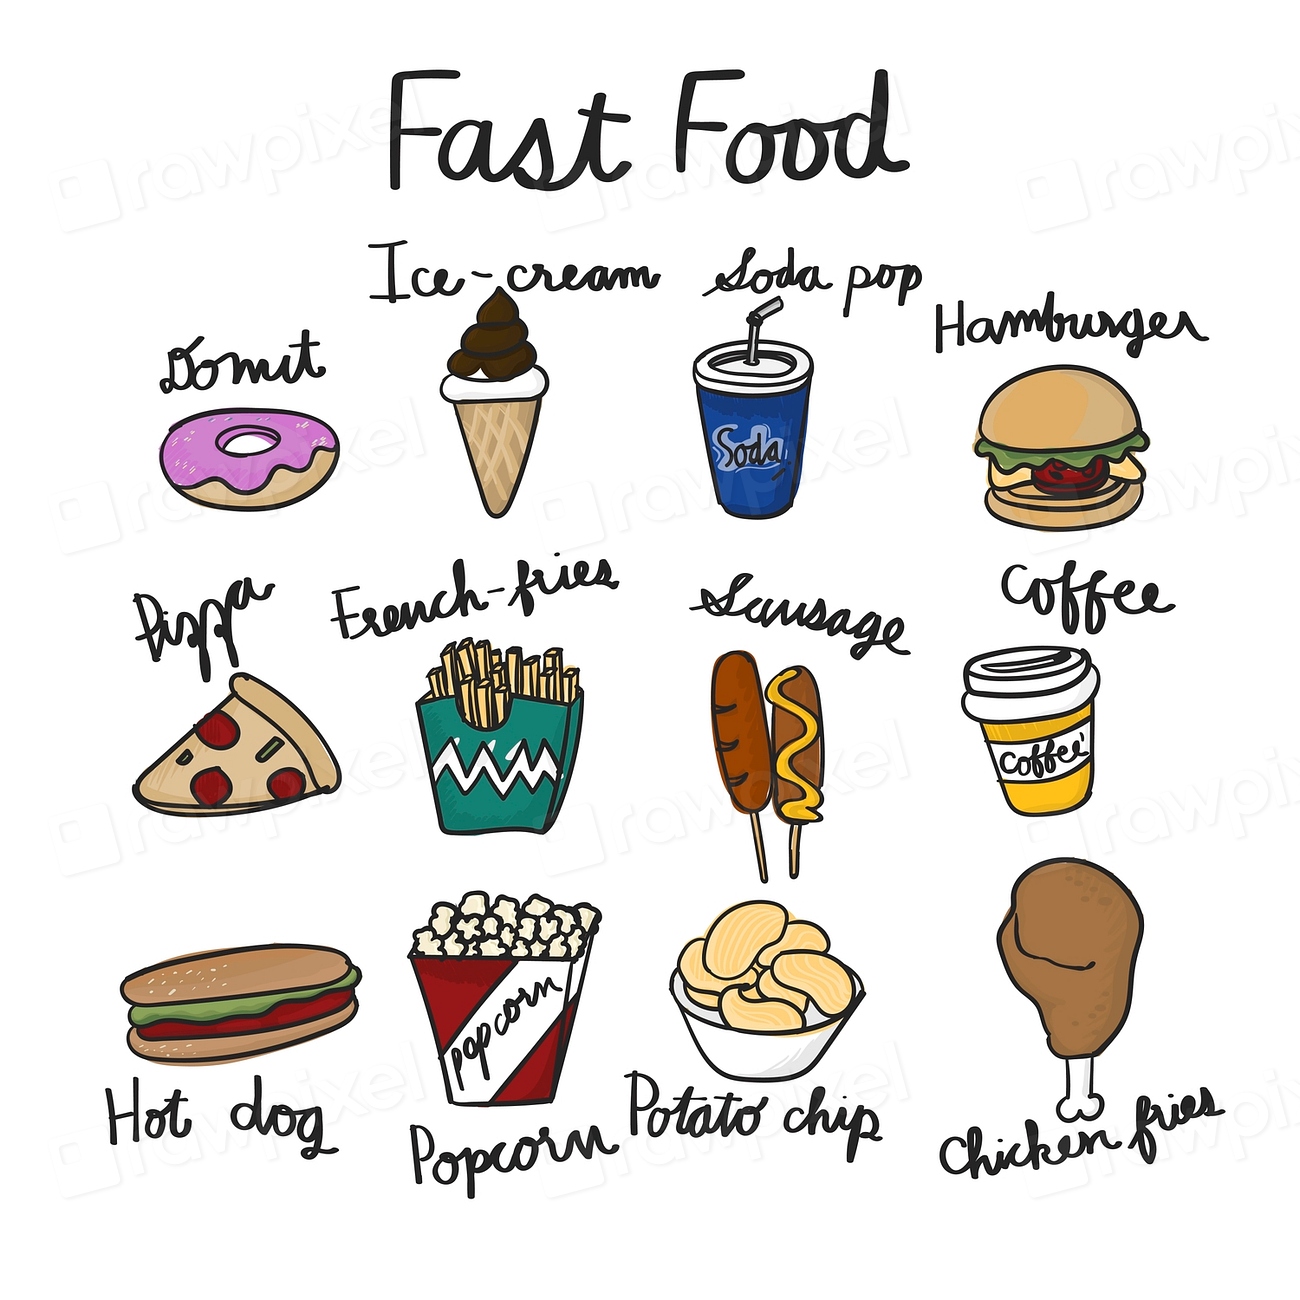 Fast Food
Ice-cream
Soda pop
Hamburger
Donut
Soda
Pizza
French-fries
Sausage
Coffee
Coffee
Popcorn
Hot dog
Popcorn
Potato chip
Chicken fries
rawpixel